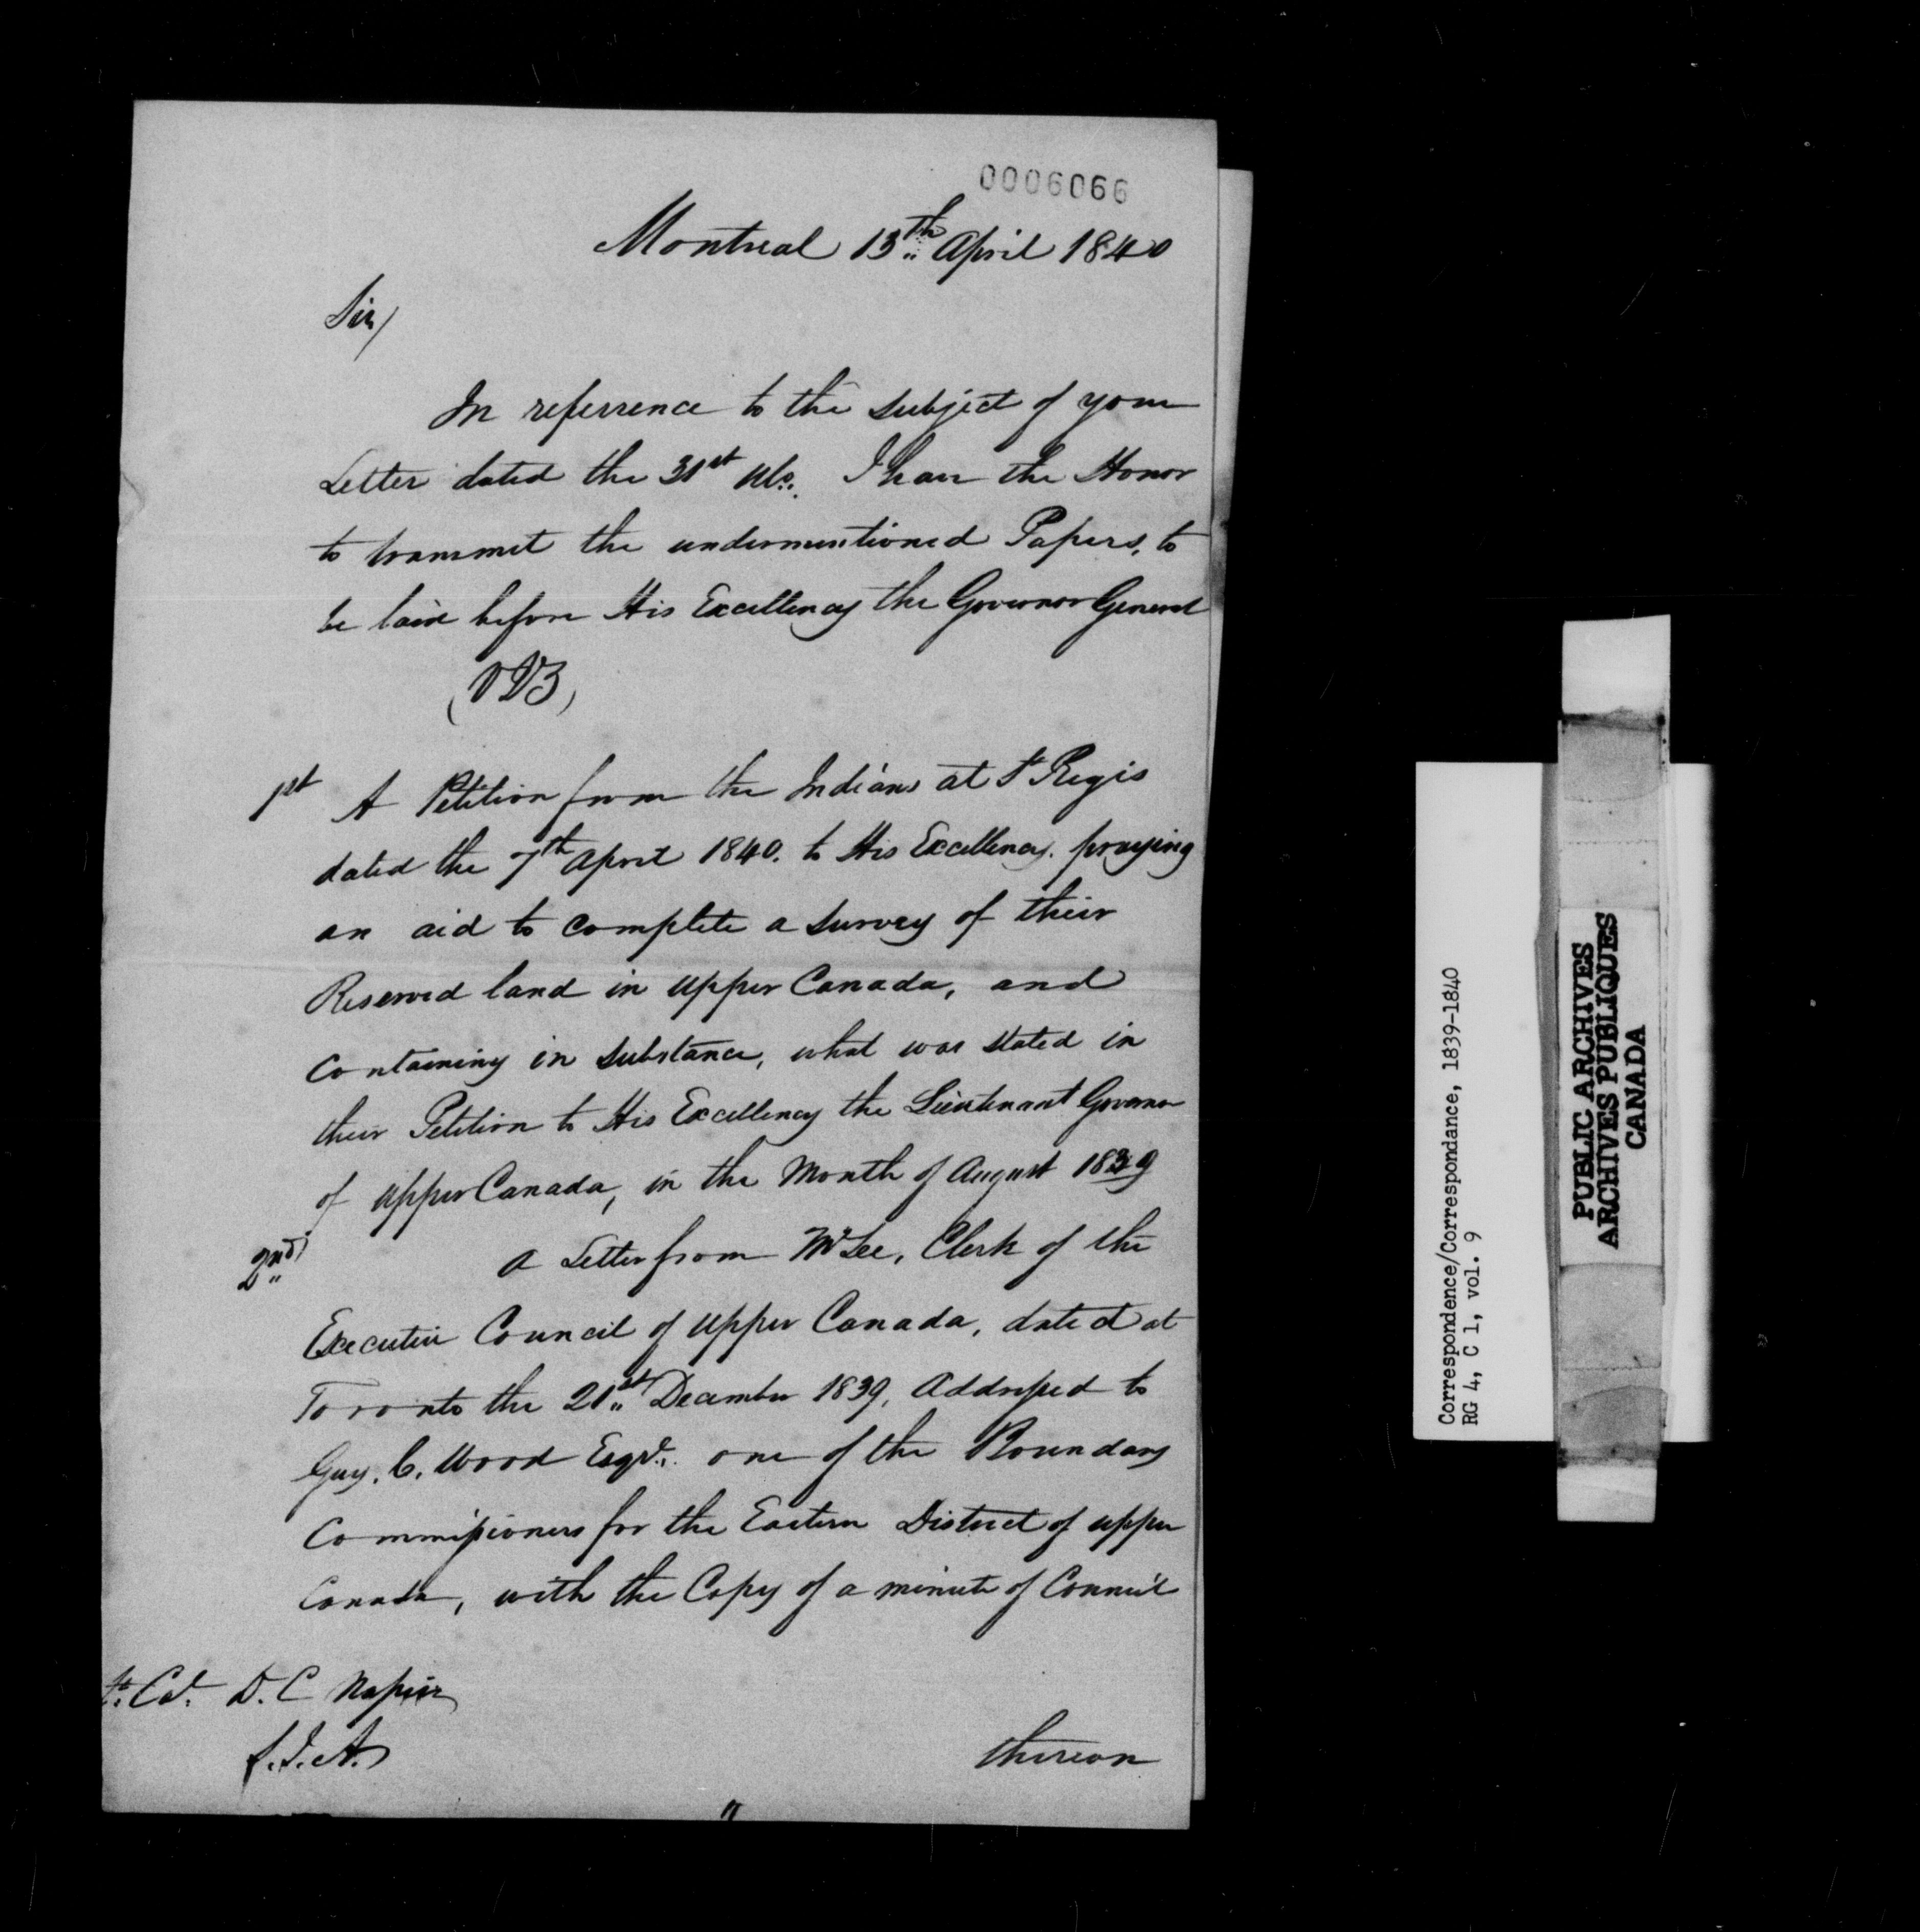 0006066
Montreal 13th April 1840
Sir/
In referrence to the subject of your
Letter dated the 31st Ulo. I have the Honor
to transmit the undermentioned Papers, to
be laid before His Excellency the Governor General
1st A Petition from the Indians at St Regis
dated the 7th April 1840. to His Excellency. praying
an aid to complete a survey of their
Reserved land in Upper Canada, and
Containing in substance, what was stated in
their Petition to His Excellency the Lieutenant Governor
of Upper Canada, in the Month of August 1839
2nd A Letter from Mr Lee, Clerk of the
Executive Council of Upper Canada, dated at
Toronto the 21st December 1839, Addressed to
Guy. C. Wood Esqr. one of the Boundary
Commissioners for the Eastern District of Upper
Canada, with the Copy of a minute of Council
Lt. Col. D. C Napier
S.I.A.
thereon
Correspondence/Correspondance, 1839-1840
RG 4, C 1, vol. 9
PUBLIC ARCHIVES
ARCHIVES PUBLIQUES
CANADA